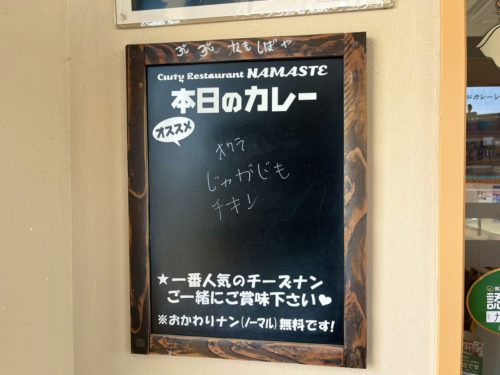 Curry Restaurant NAMASTE
本日のカレー
オススメ
オクラ
じゃがじも
チキン
★一番人気のチーズナン
ご一緒にご賞味下さい♥
※おかわりナン(ノーマル)無料です!
認